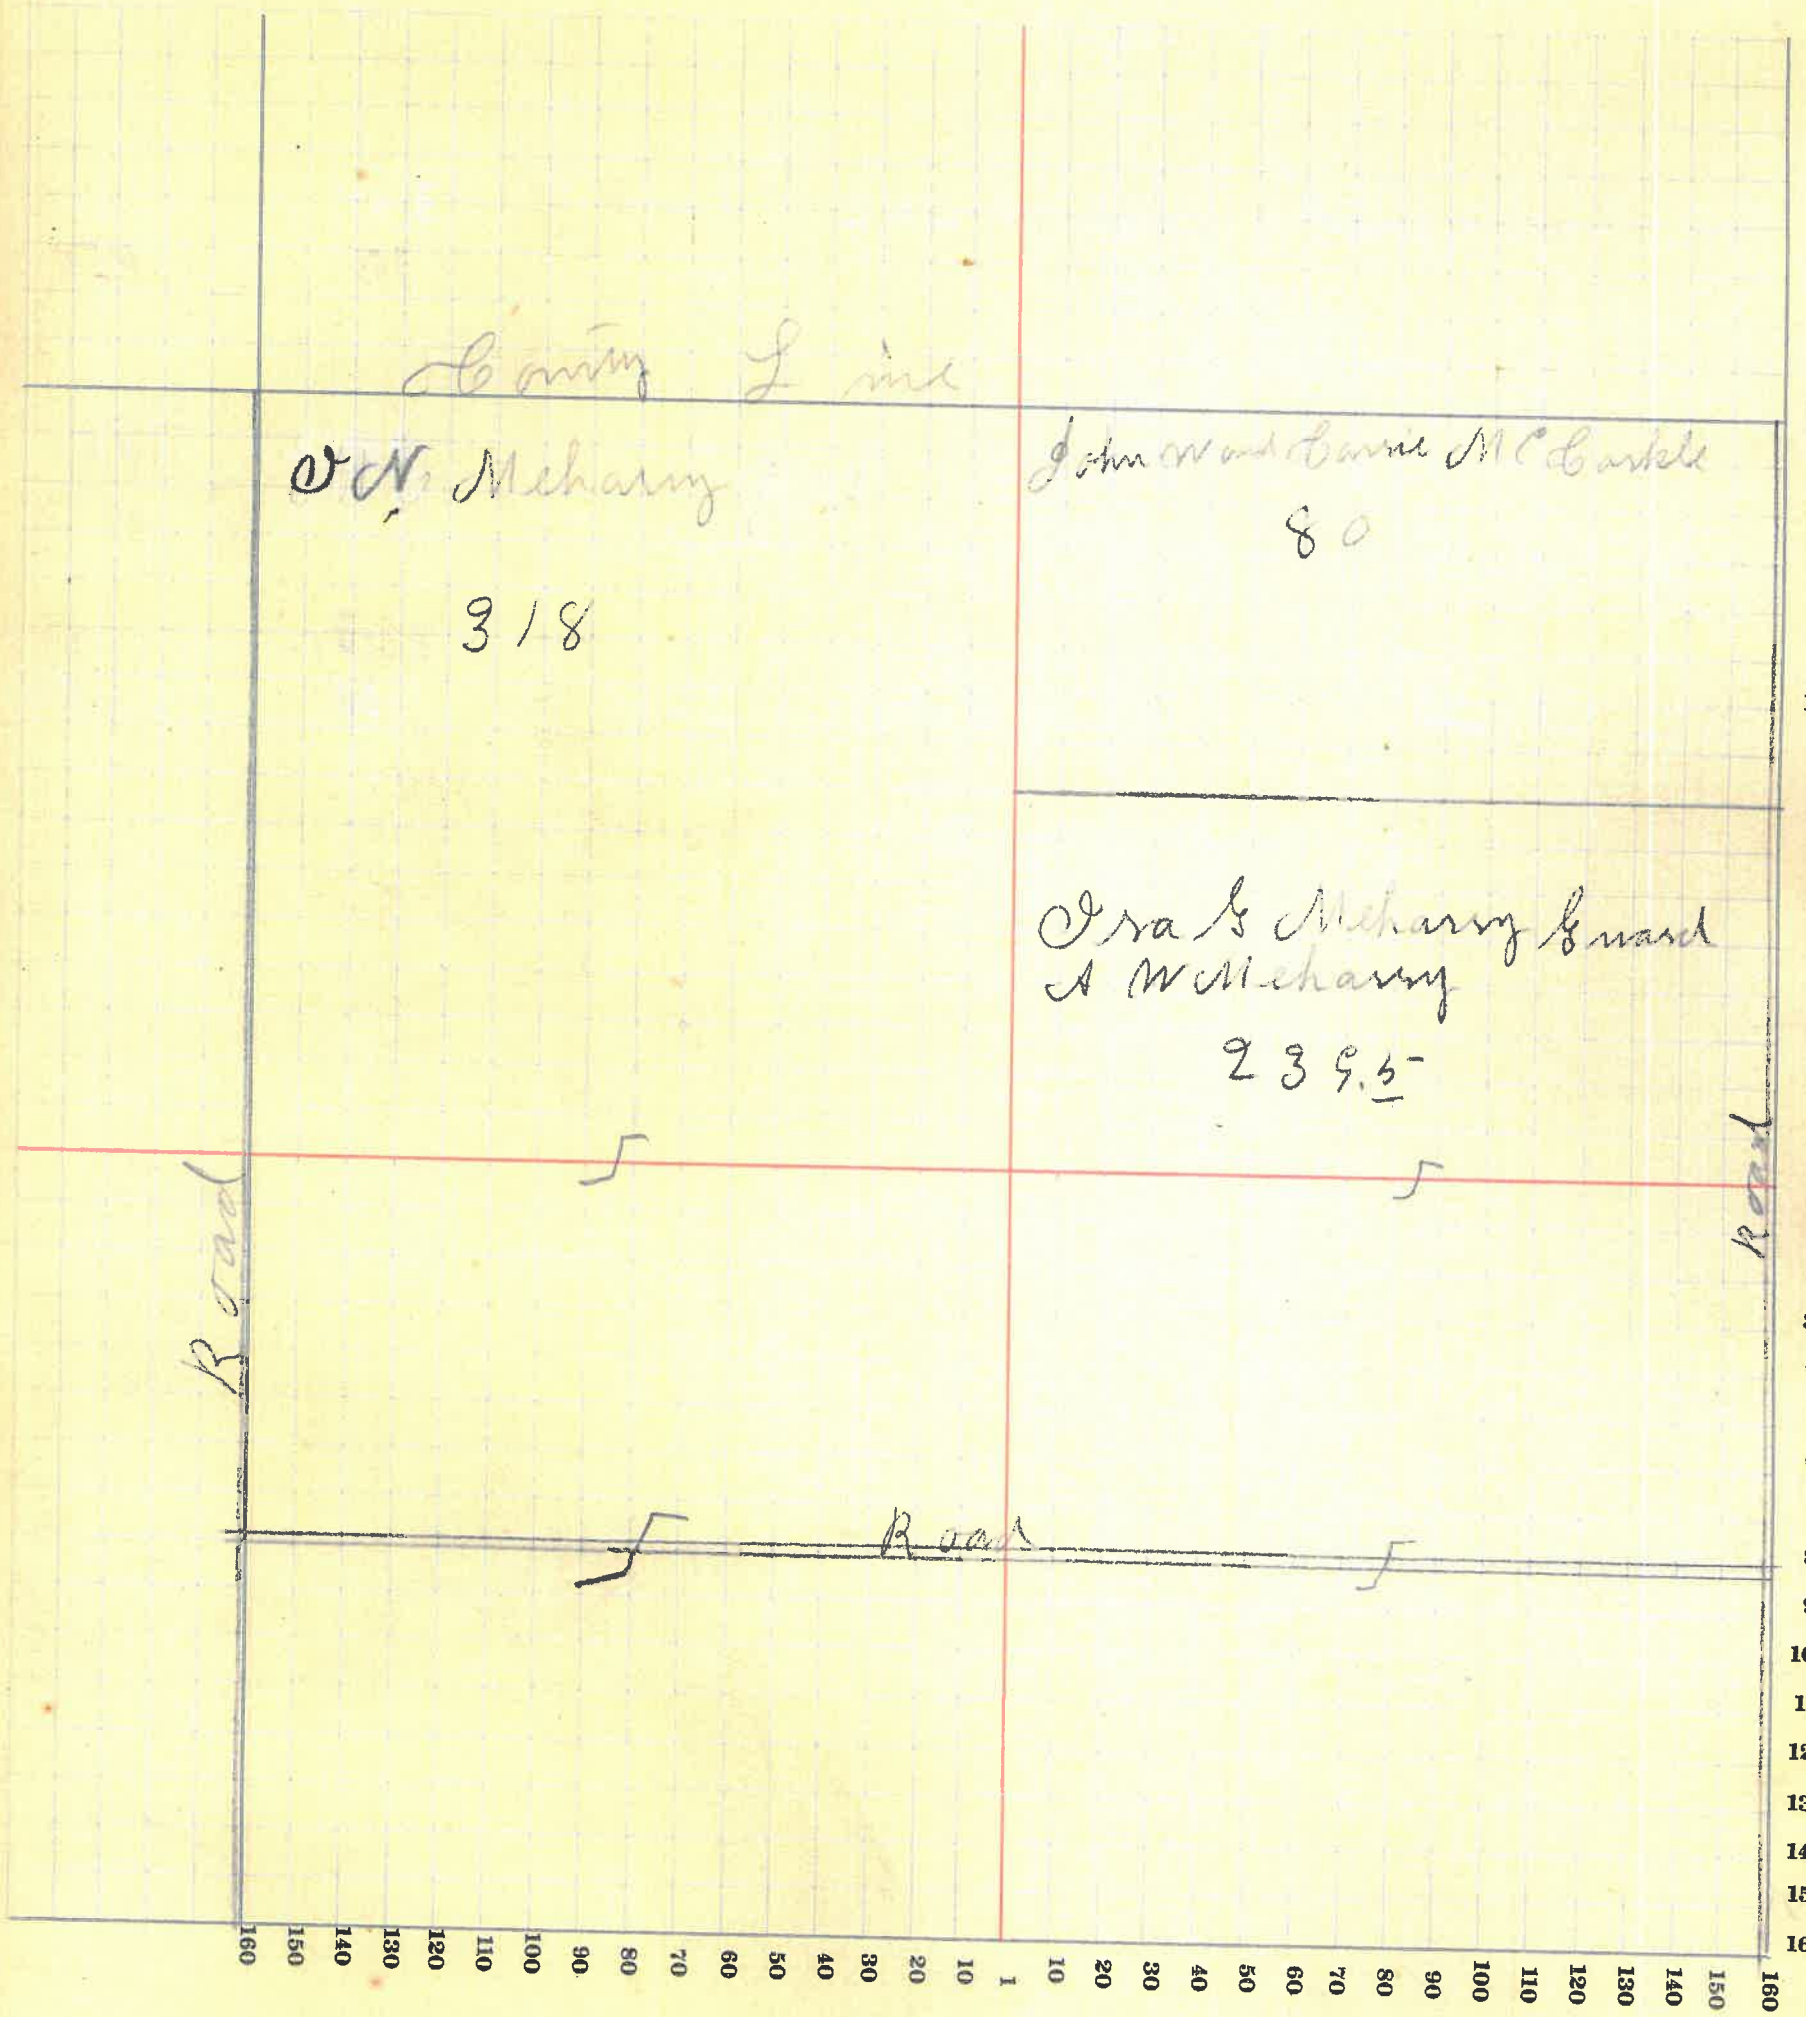 County Line
N. Meharry
318
John W and Carrie McCorkle
80
Ira G Meharry Guard
A W Meharry
239.5
Road
Road
Road
10
1
12
13
14
15
16
160 150 140 130 120 110 100 90 80 70 60 50 40 30 20 10 1 10 20 30 40 50 60 70 80 90 100 110 120 130 140 150 160